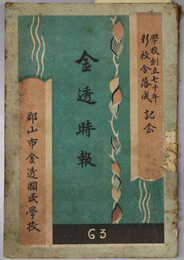 學校創立七十年
新校舎落成 記念
金透時報
郡山市金透國民學校
63